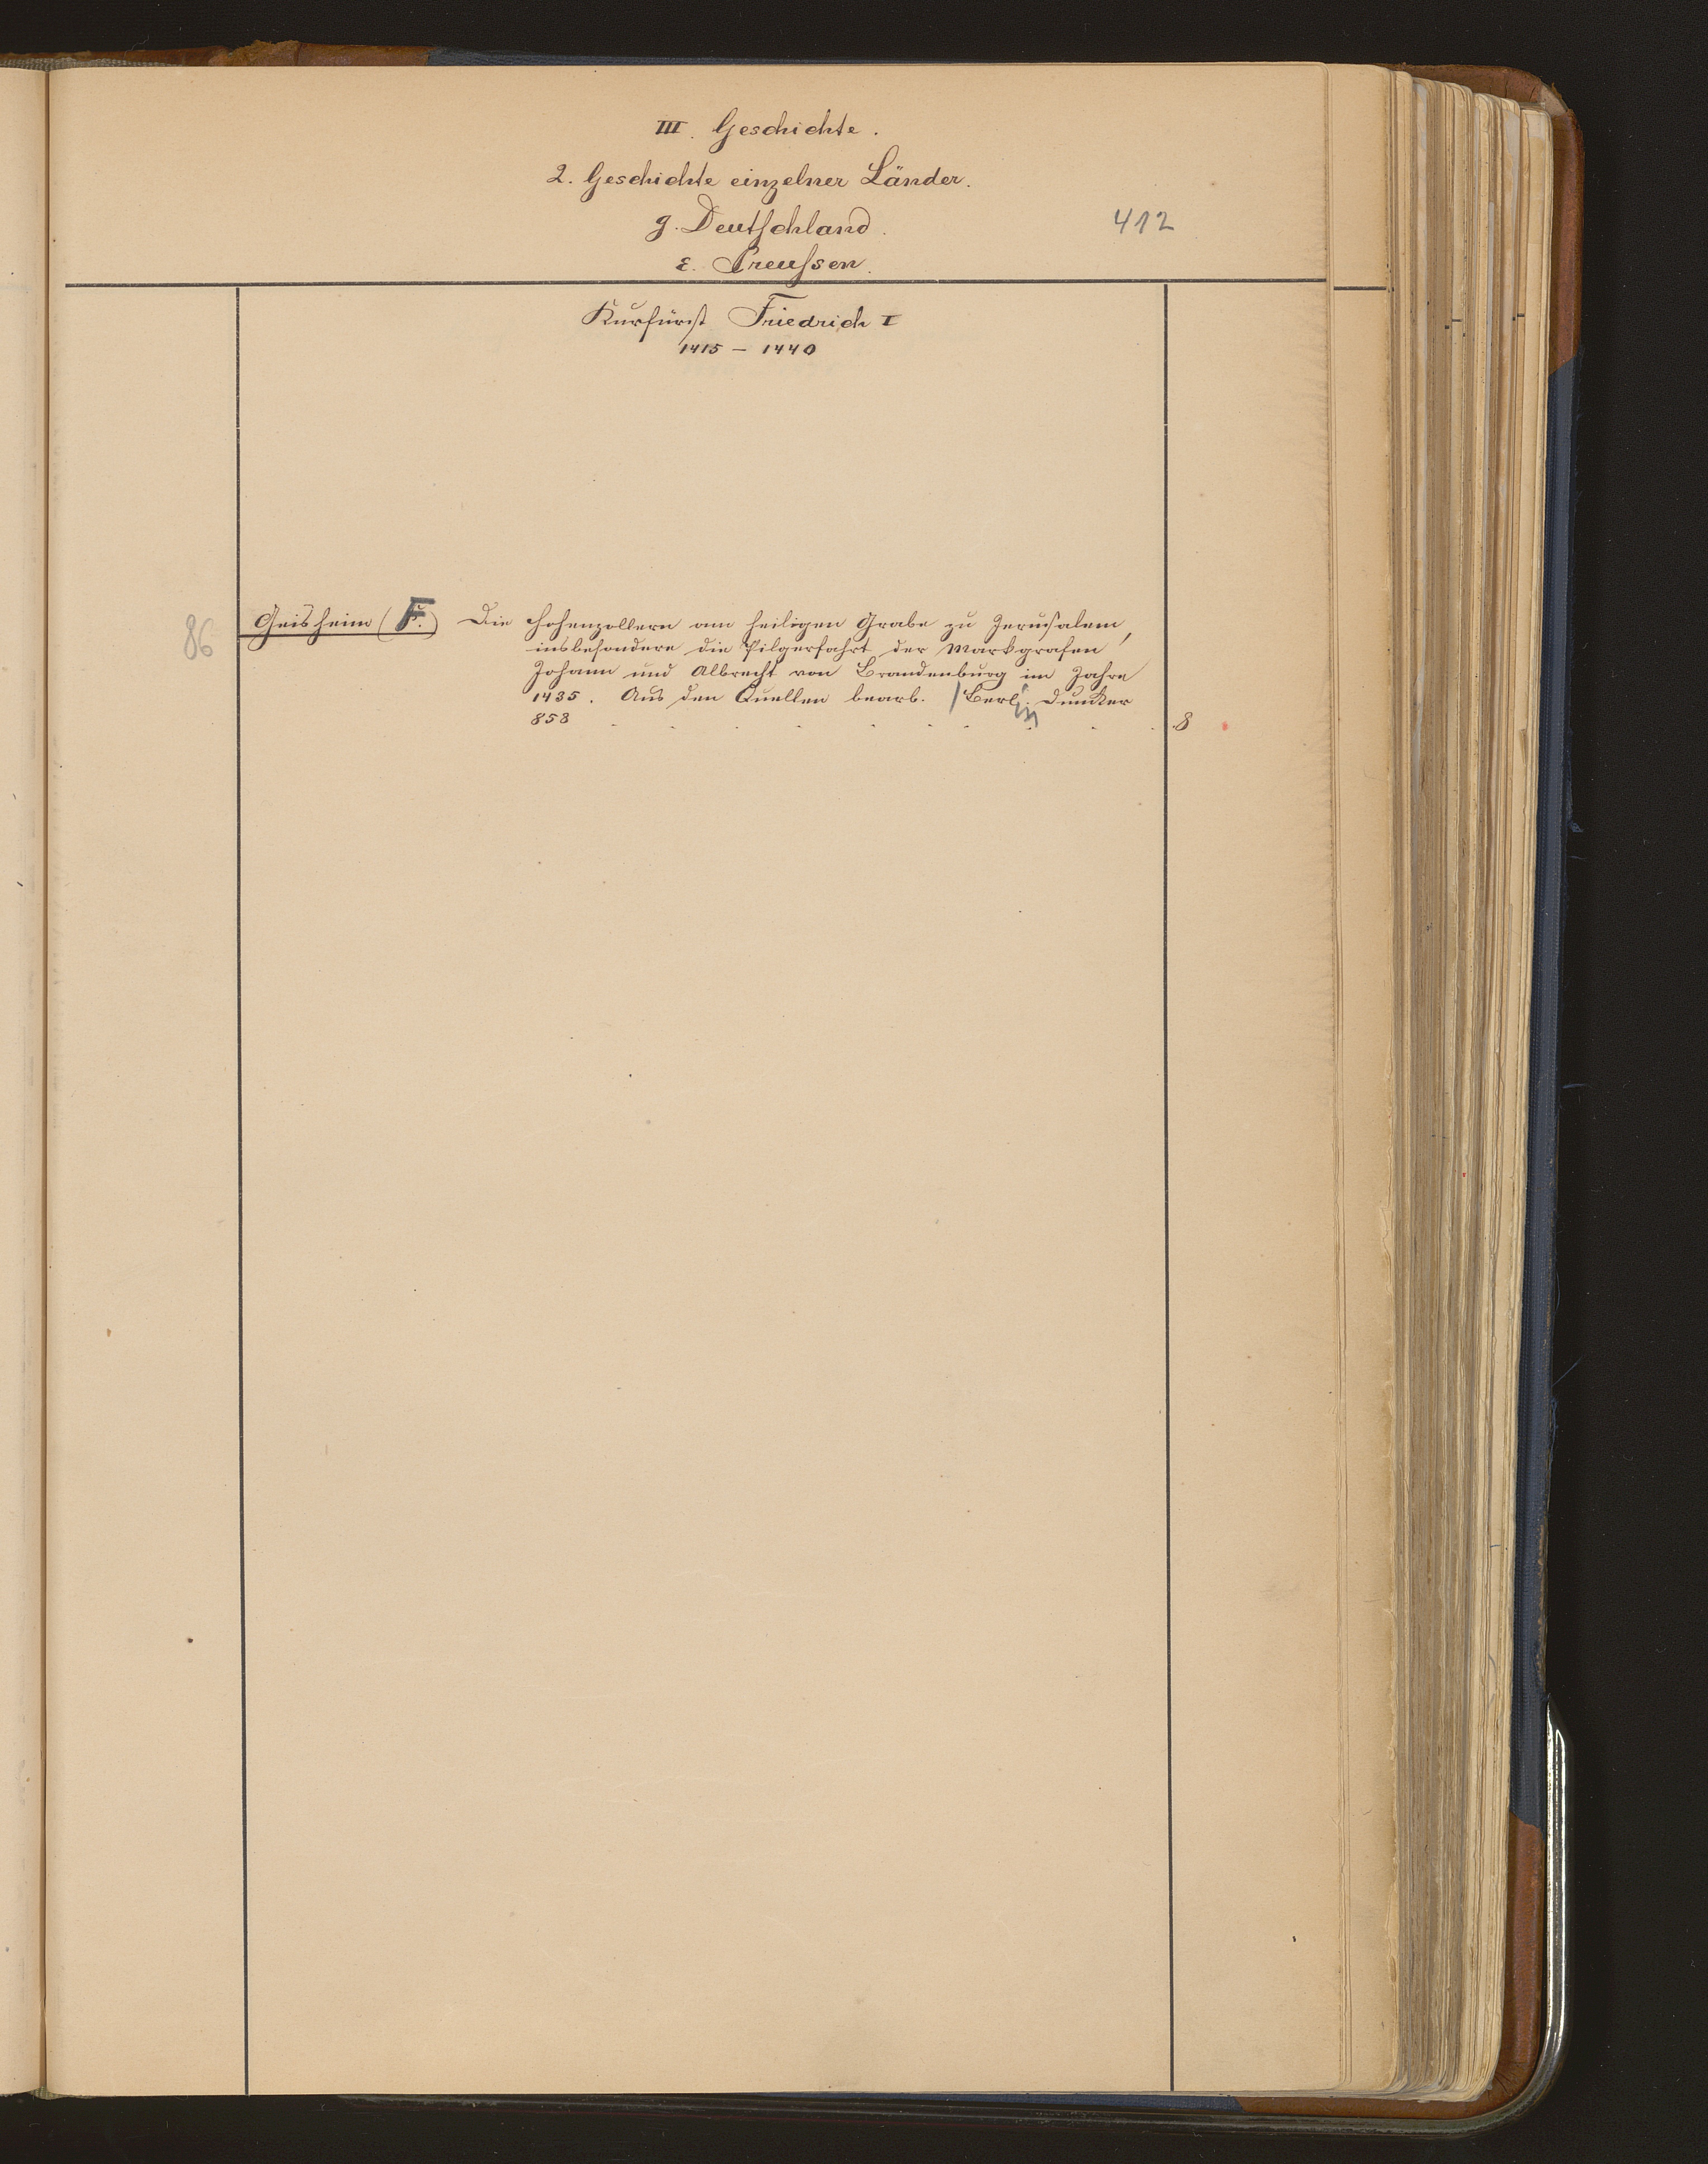 III. Geschichte.
2. Geschichte einzelner Länder.
g. Deutschland.
412
ε. Preussen.
Kurfürst Friedrich I
1415 – 1440
86 Geisheim (F.) Die Hohenzollern am heiligen Grabe zu Jerusalem,
insbesondere die Pilgerfahrt der Markgrafen
Johann und Albrecht von Brandenburg im Jahre
1435. Aus den Quellen bearb. / Berlin Duncker
858 . . . . . . . . . . 8